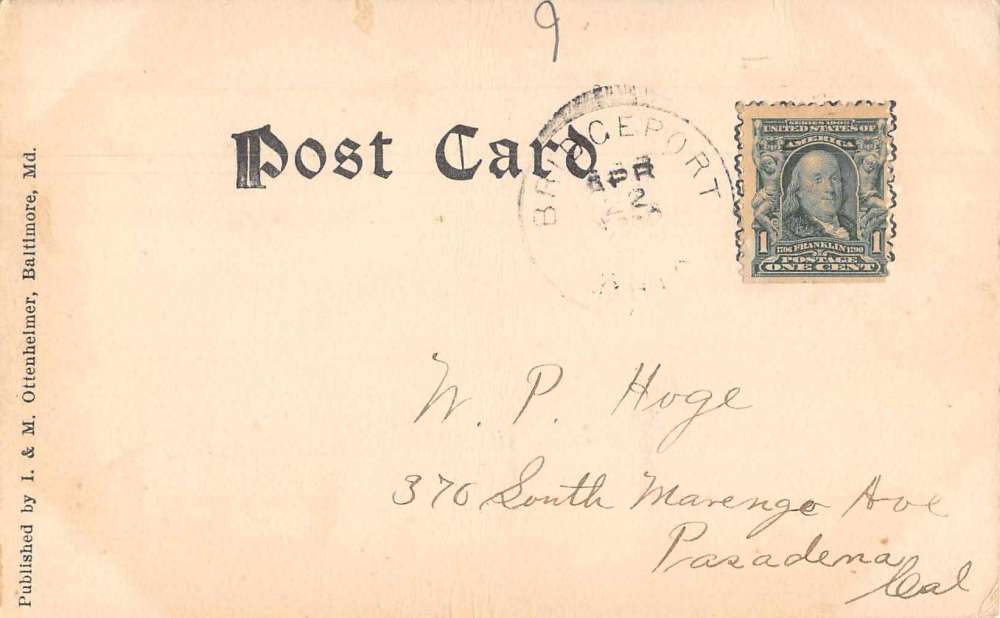 9
Post Card
BRIDGEPORT
APR
2
SERIES 1902
UNITED STATES OF
AMERICA
1706 FRANKLIN 1790
1 1
POSTAGE
ONE CENT
W. P. Hoge
370 South Marengo Ave
Pasadena
Cal
Published by I. & M. Ottenheimer, Baltimore, Md.